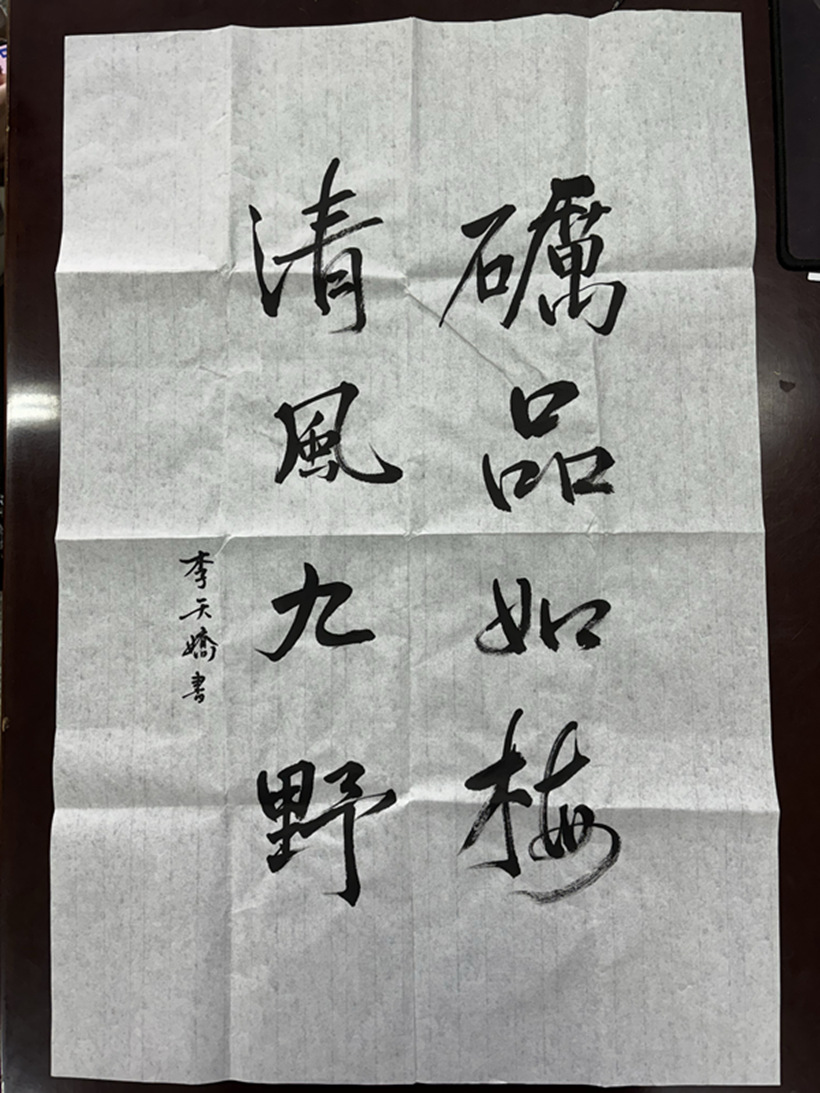 礪品如梅
清風九野
李天嬌書